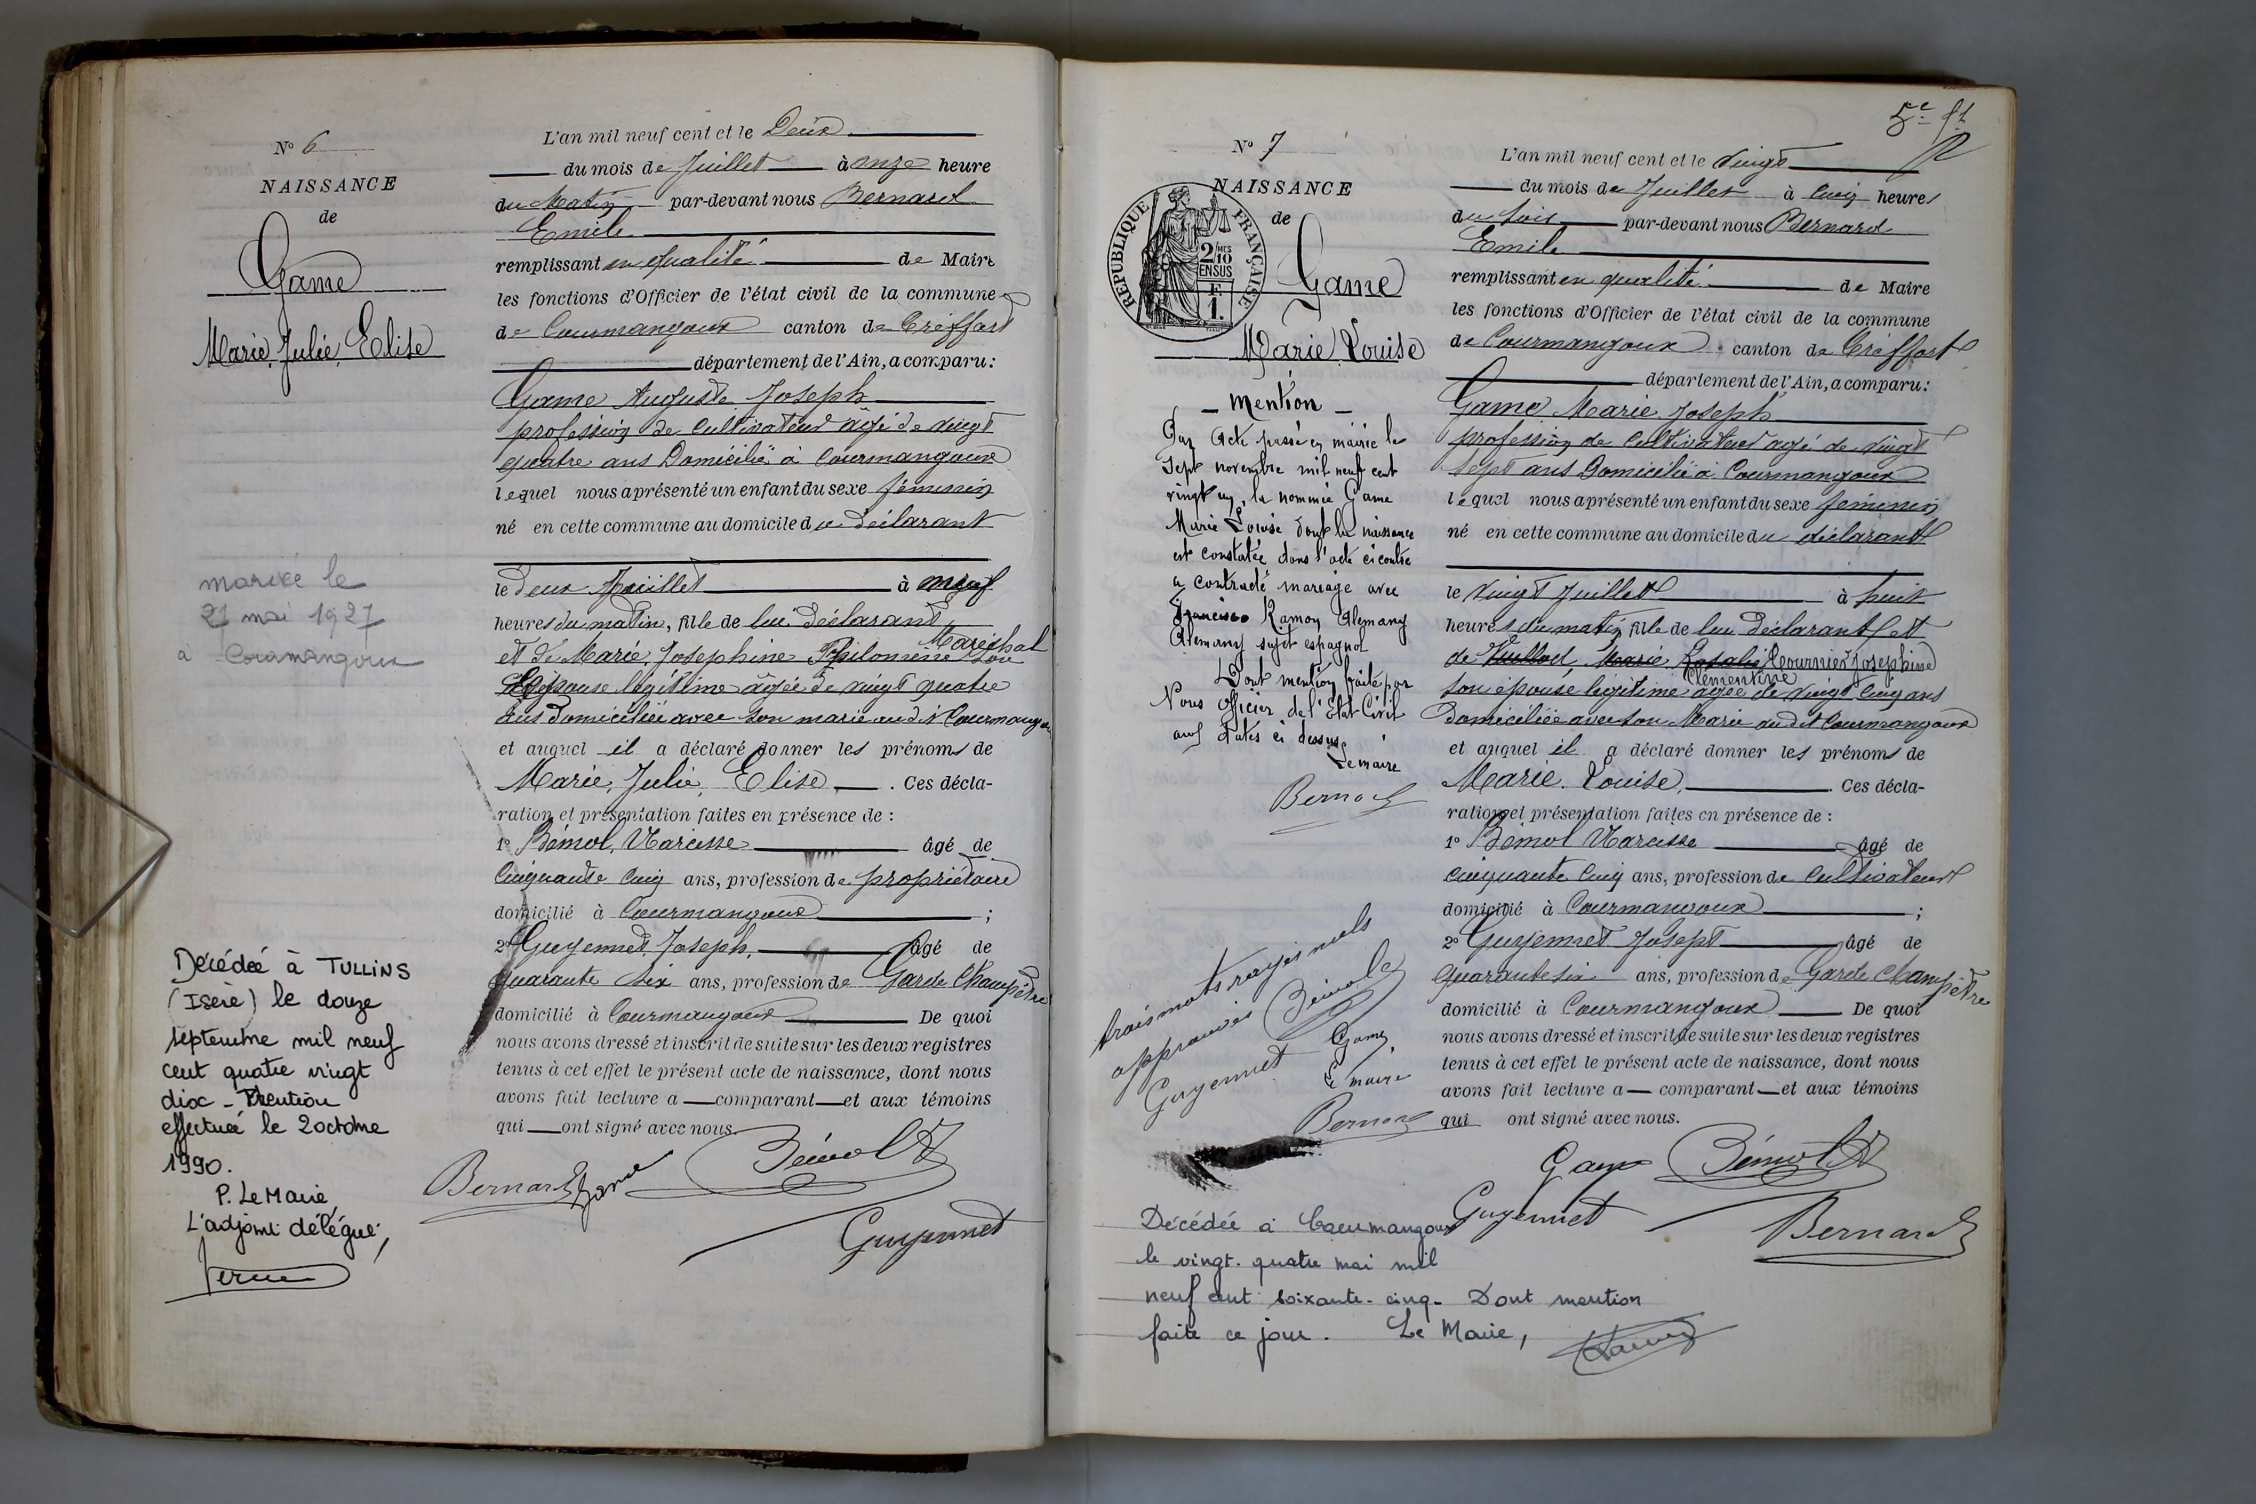 N° 6
NAISSANCE
de
Game
Marie, Julie, Elise
mariée le
21 mai 1927
à Courmangoux
Décédée à TULLINS
(Isère) le douze
septembre mil neuf
cent quatre vingt
dix - Mention
effectuée le 2 octobre
1990.
P. Le Maire
L'adjoint délégué,
L'an mil neuf cent et le Deux
du mois de Juillet à onze heure
du Matin par-devant nous Bernard
Emile
remplissant en qualité de Maire
les fonctions d'Officier de l'état civil de la commune
de Courmangoux canton de Tréffort
département de l'Ain, a comparu:
Game Auguste Joseph
profession de Cultivateur âgé de vingt
quatre ans Domicilié à Courmangoux
lequel nous a présenté un enfant du sexe féminin
né en cette commune au domicile du déclarant
le deux Juillet à neuf
heures du matin, fille de lui déclarant
et de Marie, Josephine Philomine Maréchal son
épouse légitime âgée de vingt quatre
ans domiciliée avec son marie au dit Courmangoux
et auquel il a déclaré donner les prénoms de
Marie, Julie, Elise. Ces décla-
ration et présentation faites en présence de :
1° Bémol, Narcisse âgé de
Cinquante cinq ans, profession de propriétaire
domicilié à Courmangoux ;
2° Guyennet, Joseph, âgé de
quarante six ans, profession de Garde Champêtre
domicilié à Courmangoux De quoi
nous avons dressé et inscrit de suite sur les deux registres
tenus à cet effet le présent acte de naissance, dont nous
avons fait lecture a comparant et aux témoins
qui ont signé avec nous.
Bernard Game Bémol
Guyennet
5e ft
N° 7
NAISSANCE
de
REPUBLIQUE FRANÇAISE
2/10
EN SUS
F.
1.
Game
Marie Louise
- Mention -
Par acte passé en mairie le
Sept novembre mil neuf cent
vingt un, la nommée Game
Marie Louise dont la naissance
est constatée dans l'acte ci contre
a contracté mariage avec
Francisco Ramon Alemany
Alemany sujet espagnol
Dont mention faite par
Nous officier de l'Etat Civil
aux dates ci dessus
Le maire
Bernard
trois mots rayés nuls
approuvés Bémol
Guyennet Game
Le maire
Bernard
L'an mil neuf cent et le vingt
du mois de Juillet à cinq heures
du soir par-devant nous Bernard
Emile
remplissant en qualité de Maire
les fonctions d'Officier de l'état civil de la commune
de Courmangoux canton de Tréffort
département de l'Ain, a comparu:
Game Marie Joseph
profession de Cultivateur âgé de vingt
sept ans Domicilié à Courmangoux
lequel nous a présenté un enfant du sexe féminin
né en cette commune au domicile du déclarant
le vingt Juillet à huit
heures du matin fille de lui déclarant et
de Marie Rosalie Tournier Josephine
Clémentine
son épouse légitime agée de vingt cinq ans
Domiciliée avec son Marie au dit Courmangoux
et auquel il a déclaré donner les prénoms de
Marie Louise. Ces décla-
ration et présentation faites en présence de :
1° Bémol Narcisse âgé de
cinquante cinq ans, profession de Cultivateur
domicilié à Courmangoux ;
2° Guyennet Josept âgé de
quarante six ans, profession de Garde champêtre
domicilié à Courmangoux De quoi
nous avons dressé et inscrit de suite sur les deux registres
tenus à cet effet le présent acte de naissance, dont nous
avons fait lecture a comparant et aux témoins
qui ont signé avec nous.
Game Bémol
Guyennet
Bernard
Décédée à Courmangoux
le vingt-quatre mai mil
neuf cent soixante-cinq. Dont mention
faite ce jour. Le Maire,